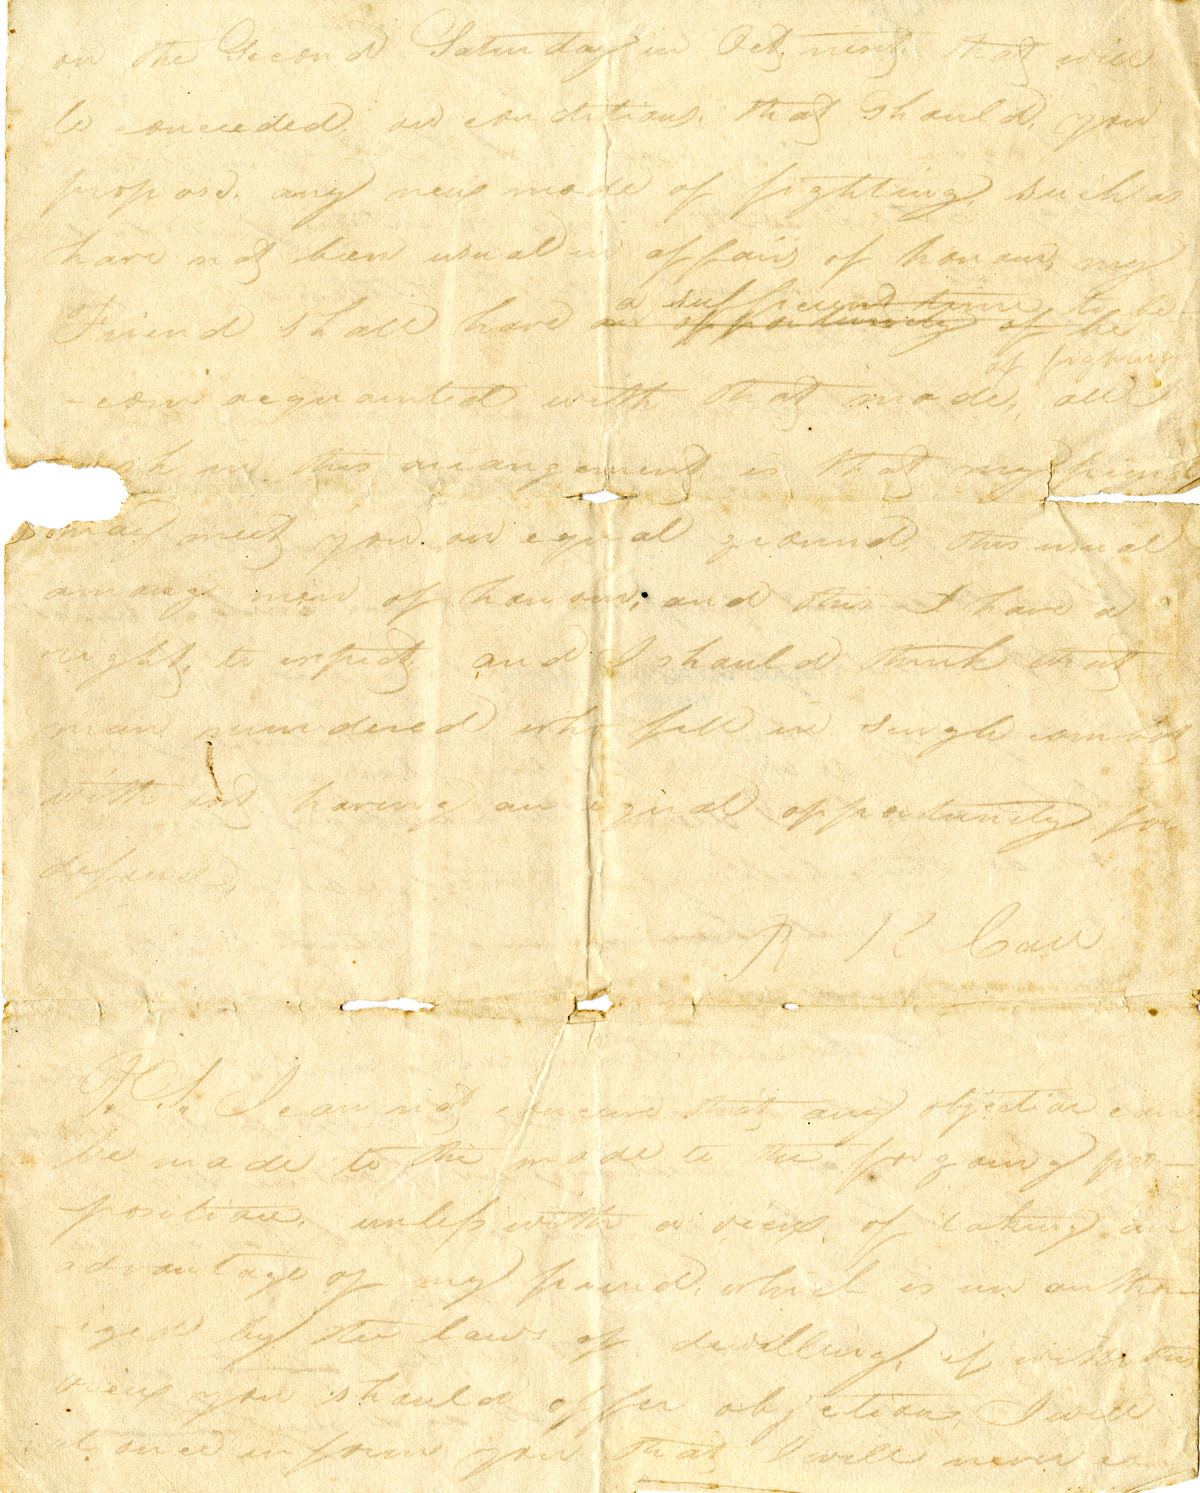 on the Second Saturday in Oct, next, that will
be conceeded, on conditions, that should, you
propose. any new mode of fighting, such as
have not been usual in affairs of honour, my
a sufficient time to be-
Friend shall have an opportunity of be
of fighting
-come acquainted with that mode, all
wish in this arrangement is that my friend
may meet you on equal ground, this usual
among men of honour, and this I have a
right, to expect, and I should think that
man murdered who fell in single combat
with out having an equal opportunity for
defence,
R K Call
P. S. I can not conceive that any objection can
be made to the mode to the forgoing pro-
position, unless with a view, of taking an
advantage of my friend, which is un autho-
-ised by the laws of dwelling, if with this
view you should offer objections, I will
at once inform you that I will never